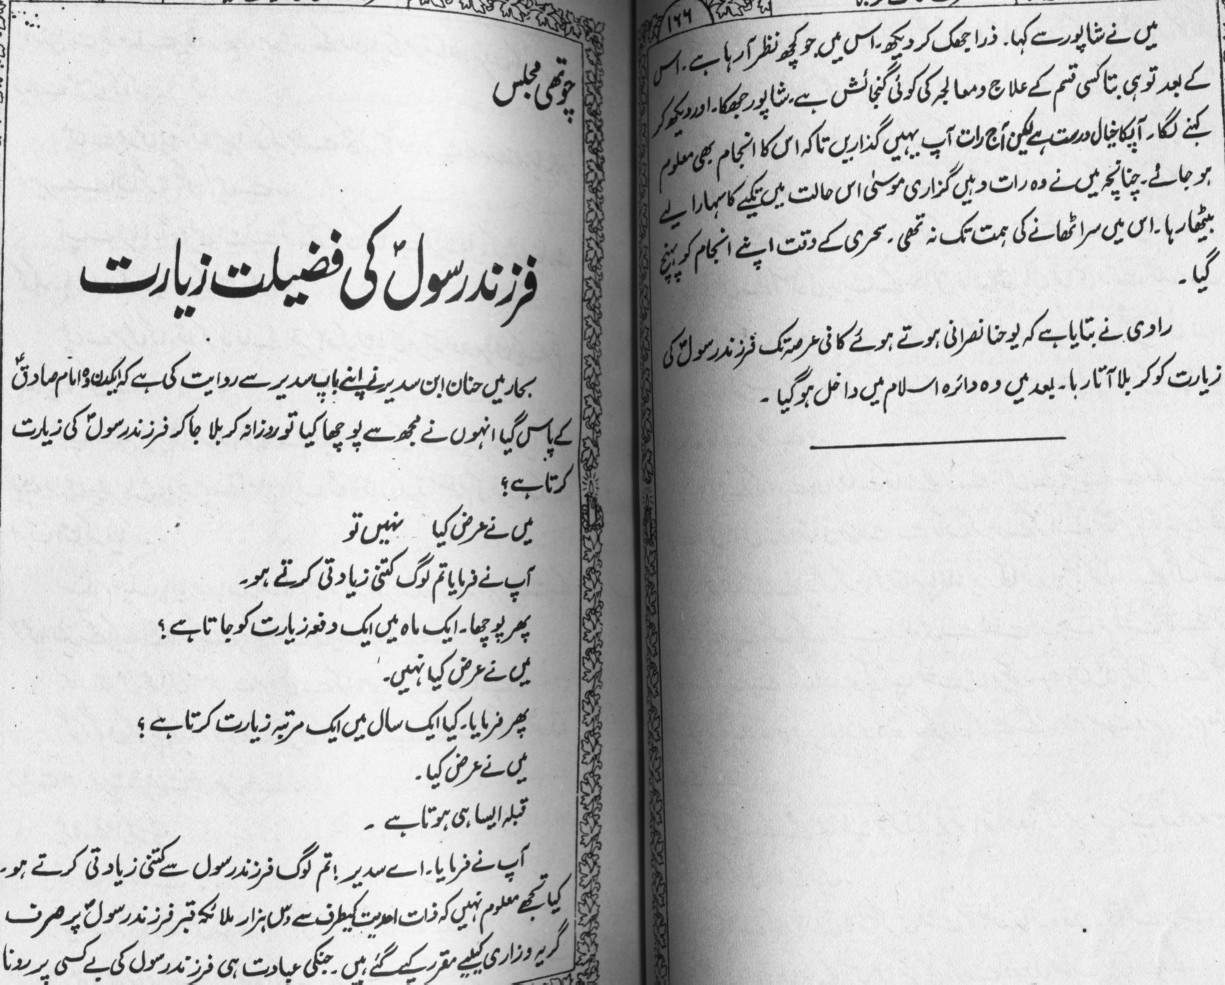 ۱۶۶
میں نے شاپور سے کہا۔ ذرا جھک کر دیکھ۔ اس میں جو کچھ نظر آ رہا ہے۔ اس
کے بعد تو ہی بتا کسی قسم کے علاج و معالجہ کی کوئی گنجائش ہے۔ شاپور جھکا۔ اور دیکھ کر
کہنے لگا۔ آپکا خیال درست ہے لیکن آج رات آپ یہیں گذاریں تاکہ اس کا انجام بھی معلوم
ہو جائے۔ چنانچہ میں نے وہ رات وہیں گزاری موسیٰ اس حالت میں تکیے کا سہارا لیے
بیٹھا رہا۔ اس میں سر اٹھانے کی ہمت تک نہ تھی۔ سحری کے وقت اپنے انجام کو پہنچ
گیا۔
راوی نے بتایا ہے کہ یوحنا نصرانی ہوتے ہوئے کافی عرصہ تک فرزند رسولؐ کی
زیارت کو کربلا آتا رہا۔ بعد میں وہ دائرہ اسلام میں داخل ہو گیا۔
چوتھی مجلس
فرزند رسولؐ کی فضیلت زیارت
بحار میں حنان ابن سدیر نے اپنے باپ سدیر سے روایت کی ہے کہ ایکدن امام صادقؑ
کے پاس گیا انہوں نے مجھ سے پوچھا کیا تو روزانہ کربلا جا کر فرزند رسولؐ کی زیارت
کرتا ہے؟
میں نے عرض کیا نہیں تو
آپ نے فرمایا تم لوگ کتنی زیادتی کرتے ہو۔
پھر پوچھا۔ ایک ماہ میں ایک دفعہ زیارت کو جاتا ہے؟
میں نے عرض کیا نہیں۔
پھر فرمایا۔ کیا ایک سال میں ایک مرتبہ زیارت کرتا ہے؟
میں نے عرض کیا۔
قبلہ ایسا ہی ہوتا ہے۔
آپ نے فرمایا۔ اے سدیر! تم لوگ فرزند رسول سے کتنی زیادتی کرتے ہو۔
کیا تجھے معلوم نہیں کہ ذات احدیت کیطرف سے دس ہزار ملائکہ قبر فرزند رسولؐ پر صرف
گریہ وزاری کیلیے مقرر کیے گئے ہیں۔ جنکی عبادت ہی فرزند رسول کی بے کسی پر رونا